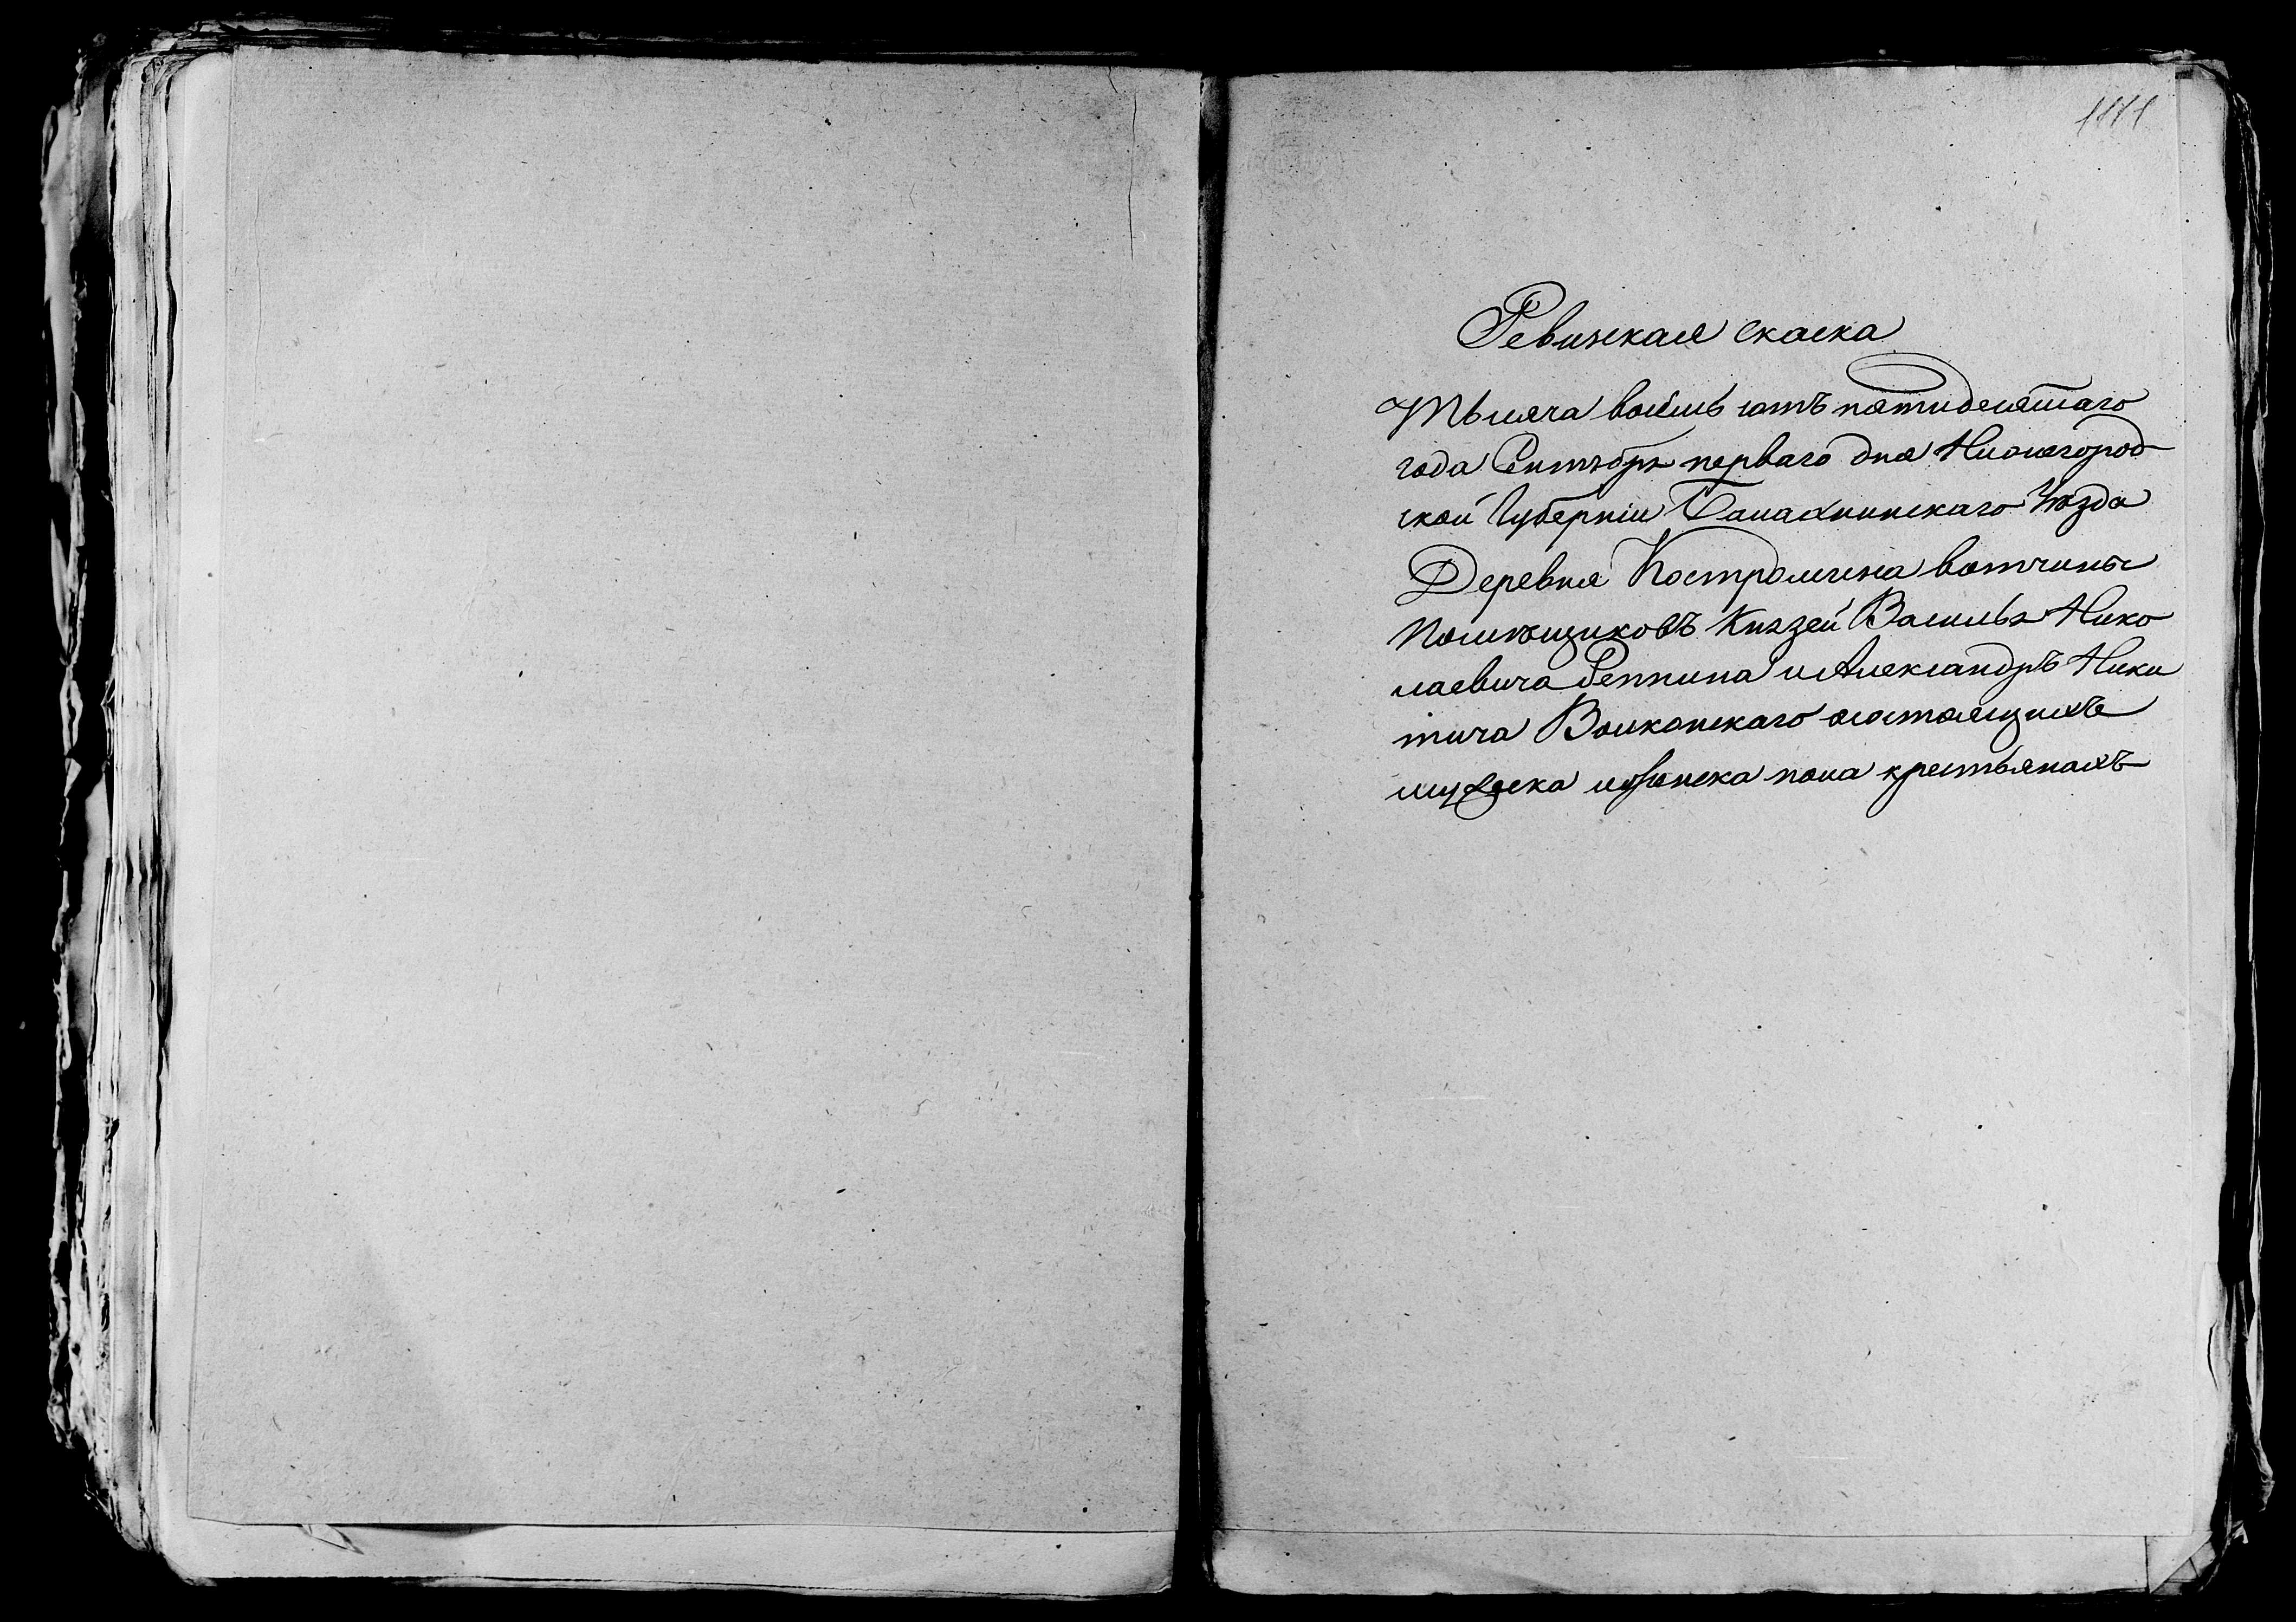 Ревизская скаска
Тысяча восемь сотъ пятидесятаго
года Сентября перваго дня Нижегород
ской Губерніи Балахнинскаго Уѣзда
Деревня Костромина вотчины
Помѣщиковъ Князей Василья Нико
лаевича Репнина и Александръ Ники
тича Волконскаго осостоящихъ
мужеска иженска пола крестьянахъ